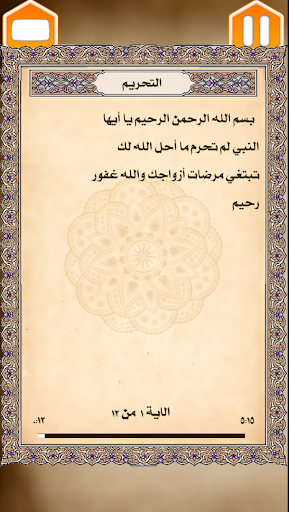 التحريم
بسم الله الرحمن الرحيم يا أيها
النبي لم تحرم ما أحل الله لك
تبتغي مرضات أزواجك والله غفور
رحيم
الاية ١ من ١٢
٠:١٢
٥:١٥